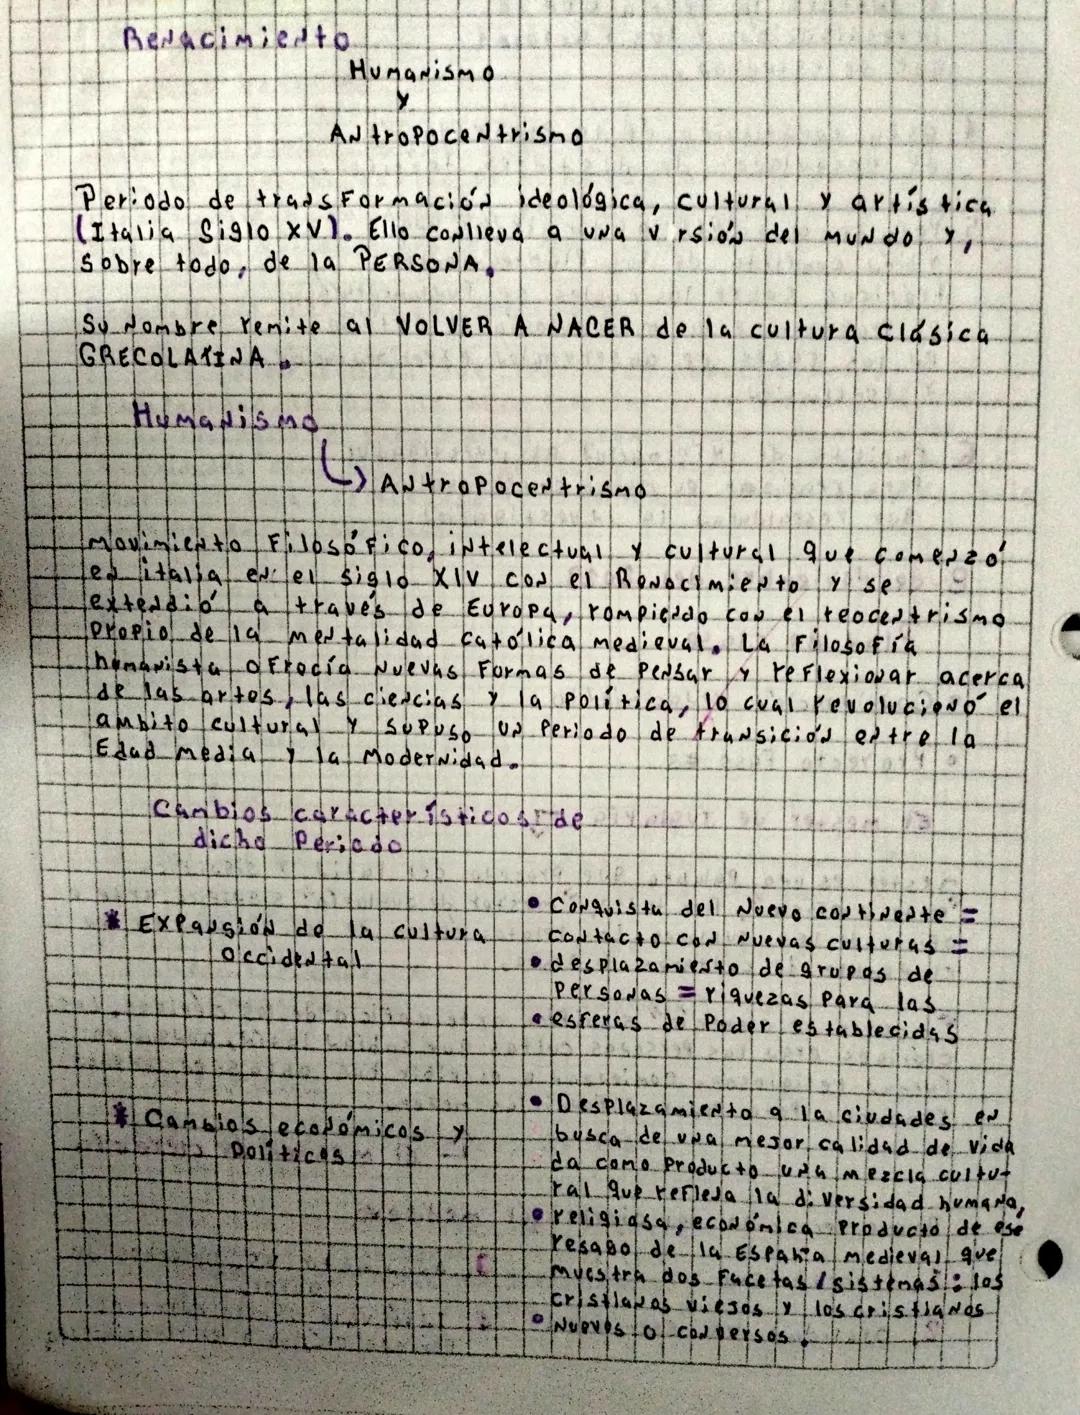 Renacimiento
Humanismo
y
Antropocentrismo
Periodo de transformación ideológica, cultural y artística
(Italia Siglo XV). Ello conlleva a una v rsión del mundo y,
sobre todo, de la PERSONA.
Su nombre remite al VOLVER A NACER de la cultura clásica
GRECOLATINA.
Humanismo
Antropocentrismo
Movimiento Filosófico, intelectual y cultural que comenzó
en italia en el siglo XIV con el Renacimiento y se
extendió a través de Europa, rompiendo con el teocentrismo
propio de la mentalidad católica medieval. La Filosofía
humanista ofrocía nuevas formas de pensar y reflexionar acerca
de las artes, las ciencias y la política, lo cual revolucionó el
ambito cultural y supuso un periodo de transición entre la
Edad media y la Modernidad.
Cambios característicos de
dicho Periodo
* Expansión de la cultura
Occidental
• Conquista del Nuevo continente =
contacto con nuevas culturas =
• desplazamiento de grupos de
personas = riquezas para las
• esferas de Poder establecidas
* Cambios económicos y
Políticos
• Desplazamiento a la ciudades en
busca de una mejor calidad de vida
da como producto una mezcla cultu-
ral que refleja la diversidad humana,
• religiosa, económica producto de ese
resago de la España medieval que
muestra dos facetas / sistemas: los
cristianos viejos y los cristianos
• Nuevos o conversos.